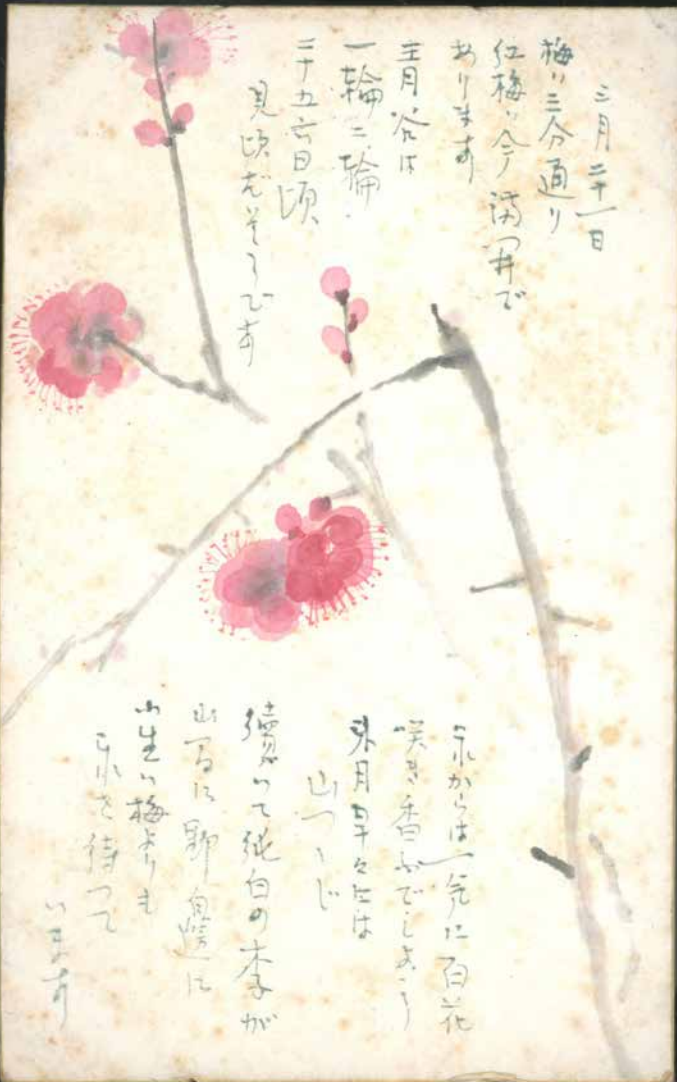 三月二十一日
梅ハ三分通り
紅梅ハ今満開で
あります
月谷は
一輪二輪
二十五六日頃
見頃ださうです
それからは一気に百花
咲き香ふでしょう
来月早々には
山つゝじ
続いて純白の李が
山間に野辺に
小生ハ梅よりも
それを待つて
います